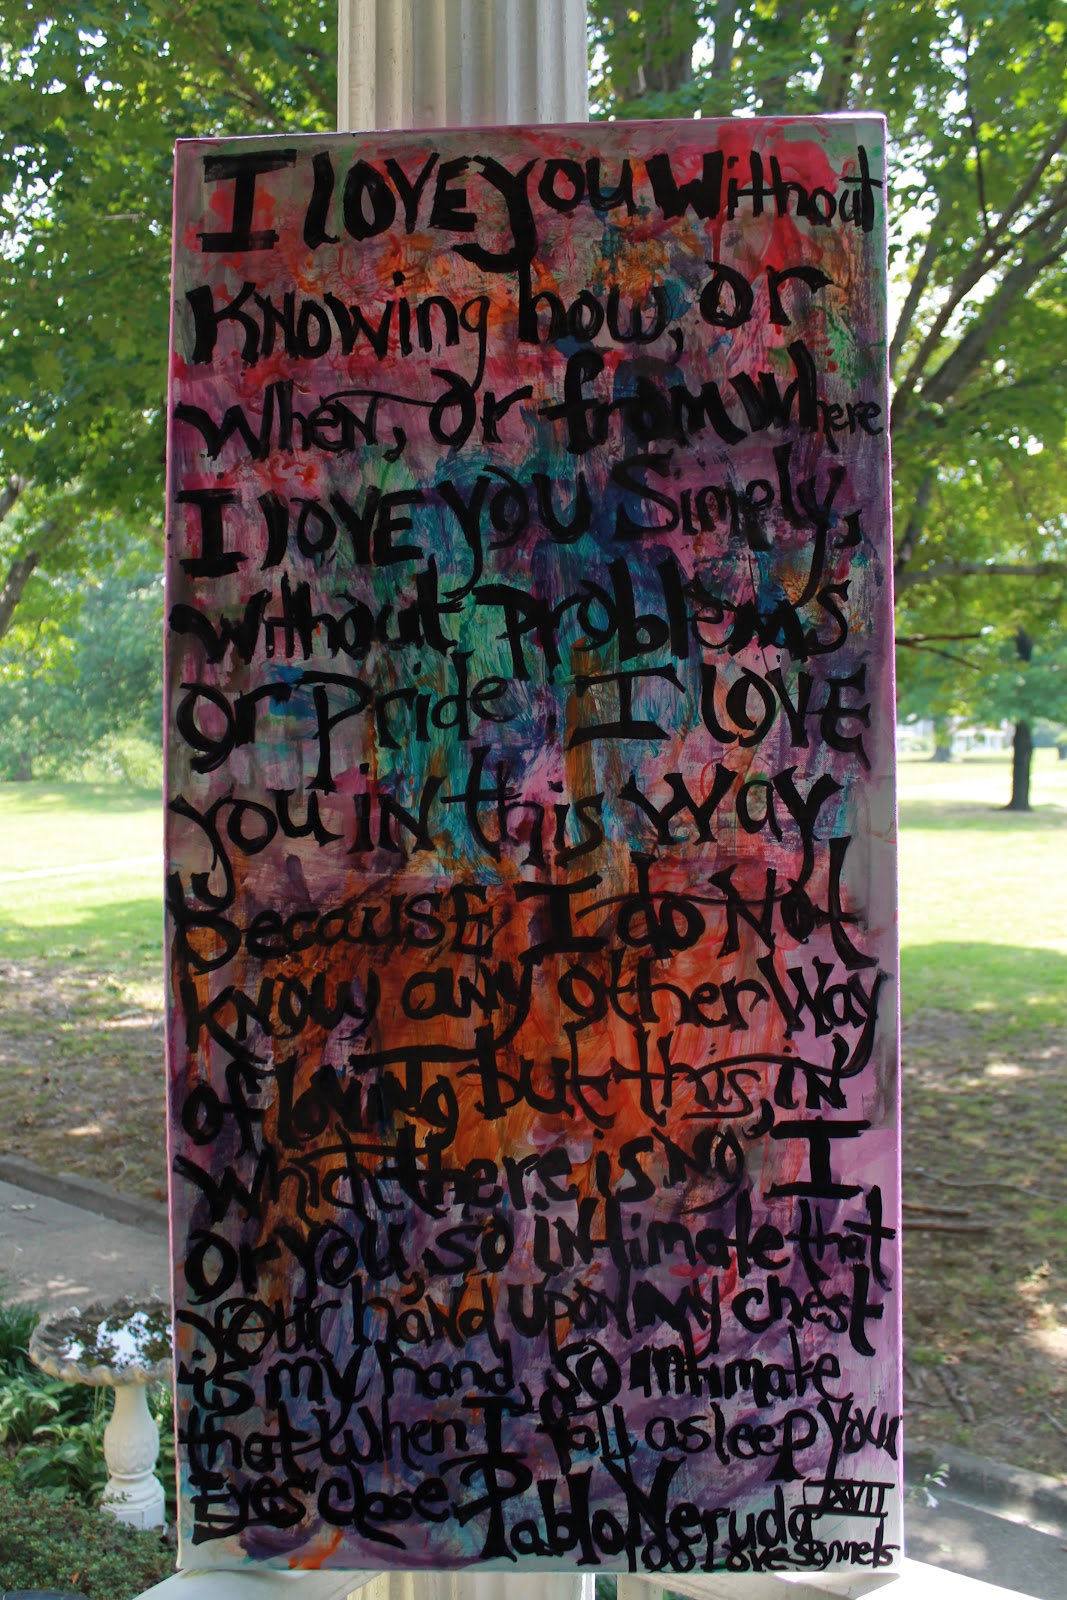 I LOVE you Without
Knowing how, or
When, or from Where
I LOVE you Simply,
without problems
or Pride. I LOVE
you in this Way
Because I do Not
know any other Way
of loving but this, in
which there is no I
or you, so intimate that
your hand upon my chest
is my hand, so intimate
that When I fall asleep your
Eyes close Pablo Neruda XVII
100 Love Sonnets